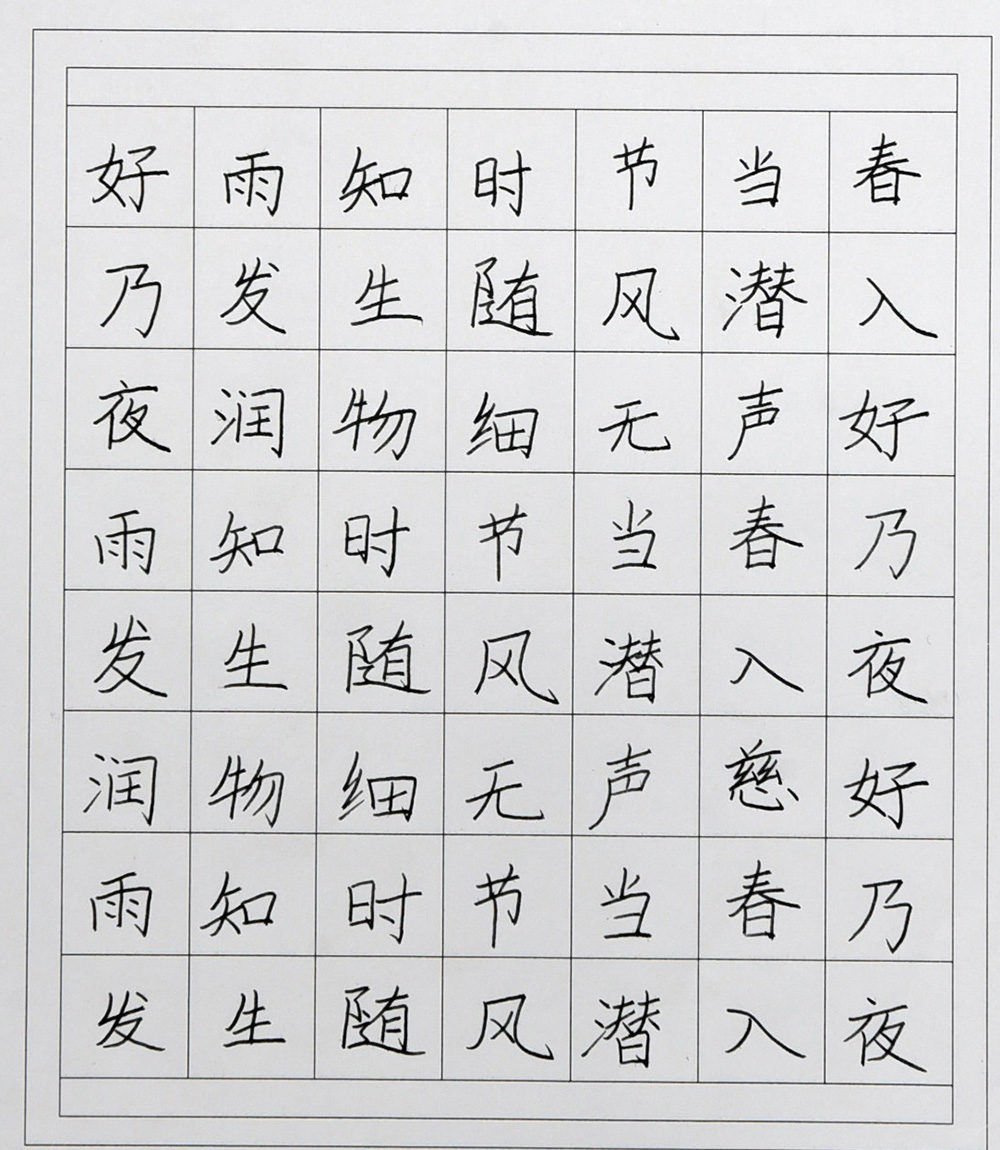 好雨知时节当春
乃发生随风潜入
夜润物细无声好
雨知时节当春乃
发生随风潜入夜
润物细无声慈好
雨知时节当春乃
发生随风潜入夜